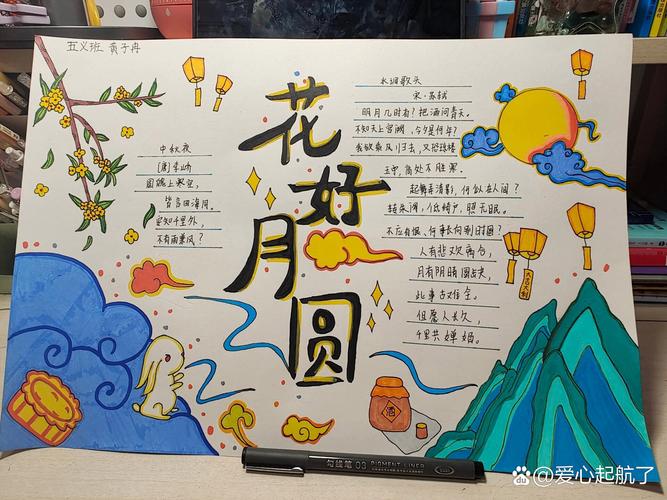 五义班 黄子冉
花好月圆
中秋夜
[唐]李峤
圆魄上寒空，
皆言四海同。
安知千里外，
不有雨兼风？
水调歌头
宋·苏轼
明月几时有？把酒问青天。
不知天上宫阙，今夕是何年？
我欲乘风归去，又恐琼楼
玉宇，高处不胜寒。
起舞弄清影，何似在人间？
转朱阁，低绮户，照无眠。
不应有恨，何事长向别时圆？
人有悲欢离合，
月有阴晴圆缺，
此事古难全。
但愿人长久，
千里共婵娟。
酒
勾线笔 03 PIGMENT LINER
Baidu @爱心起航了